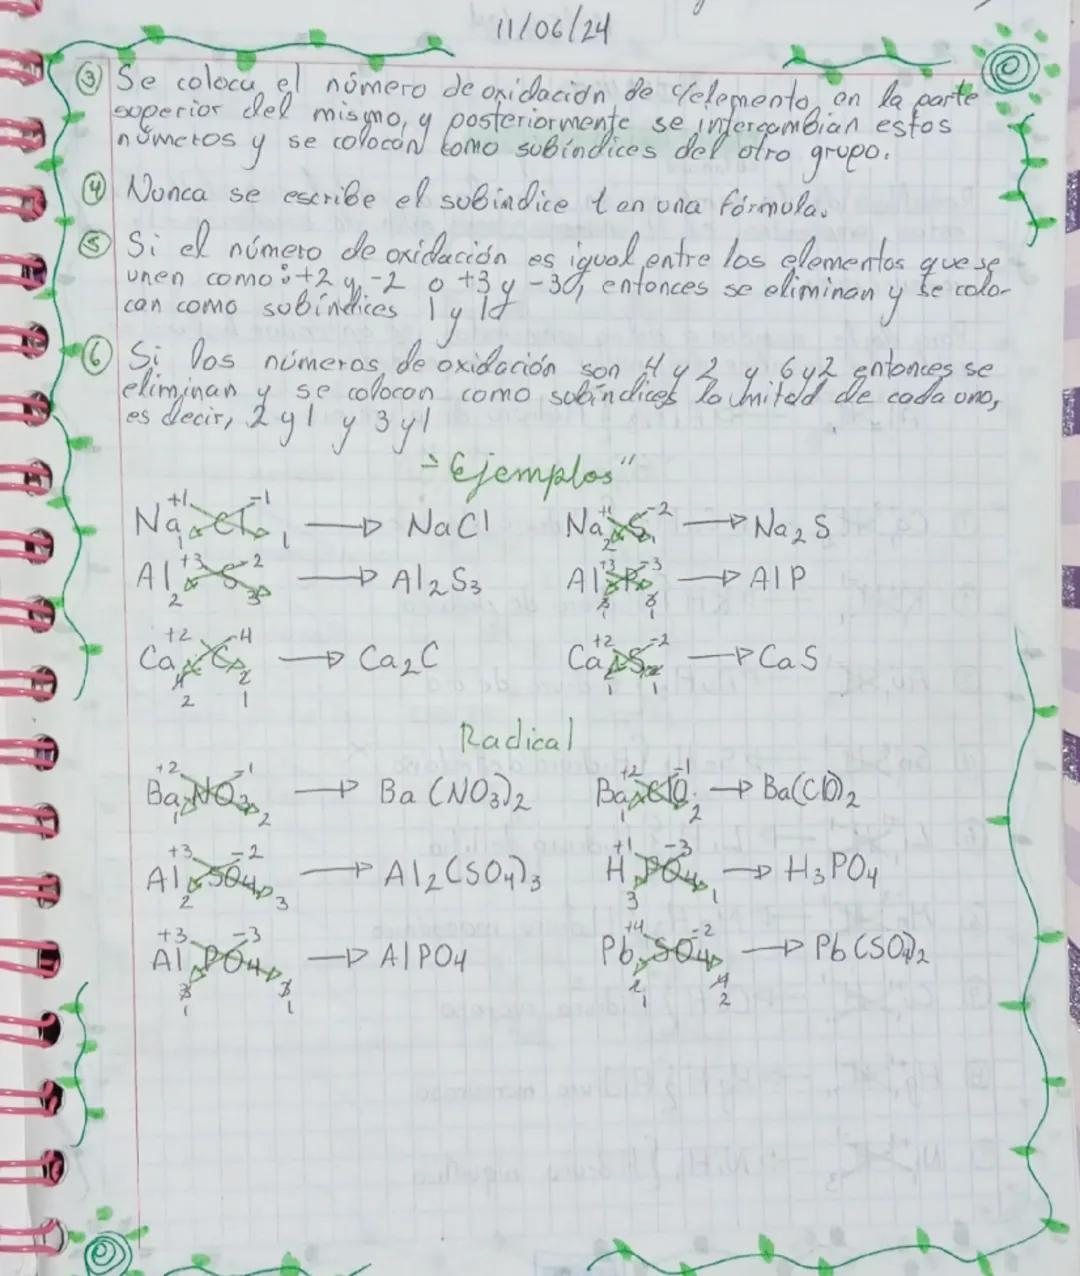 11/06/24
③ Se coloca el número de oxidación de c/elemento, en la parte
superior del mismo, y posteriormente se intercambian estos
números y se colocan como subíndices del otro grupo.
④ Nunca se escribe el subíndice 1 en una fórmula.
⑤ Si el número de oxidación es igual entre los elementos que se
unen como: +2 y -2 o +3 y -3, entonces se eliminan y se colo-
can como subíndices 1 y 1
⑥ Si los números de oxidación son 4 y 2 y 6 y 2 entonces se
eliminan y se colocan como subíndices la mitad de cada uno,
es decir, 2 y 1 y 3 y 1
"Ejemplos"
Na+1 1 Cl-1 1 → NaCl Na+1 2 S-2 1 → Na2S
Al+3 2 S-2 3 → Al2S3 Al+3 3 1 P-3 3 1 → AlP
Ca+2 4 2 C-4 2 1 → Ca2C Ca+2 2 1 S-2 2 1 → CaS
Radical
Ba+2 1 NO3-1 2 → Ba(NO3)2 Ba+2 1 ClO-1 2 → Ba(ClO)2
Al+3 2 SO4-2 3 → Al2(SO4)3 H+1 3 PO4-3 1 → H3PO4
Al+3 3 1 PO4-3 3 1 → AlPO4 Pb+4 2 1 SO4-2 4 2 → Pb(SO4)2